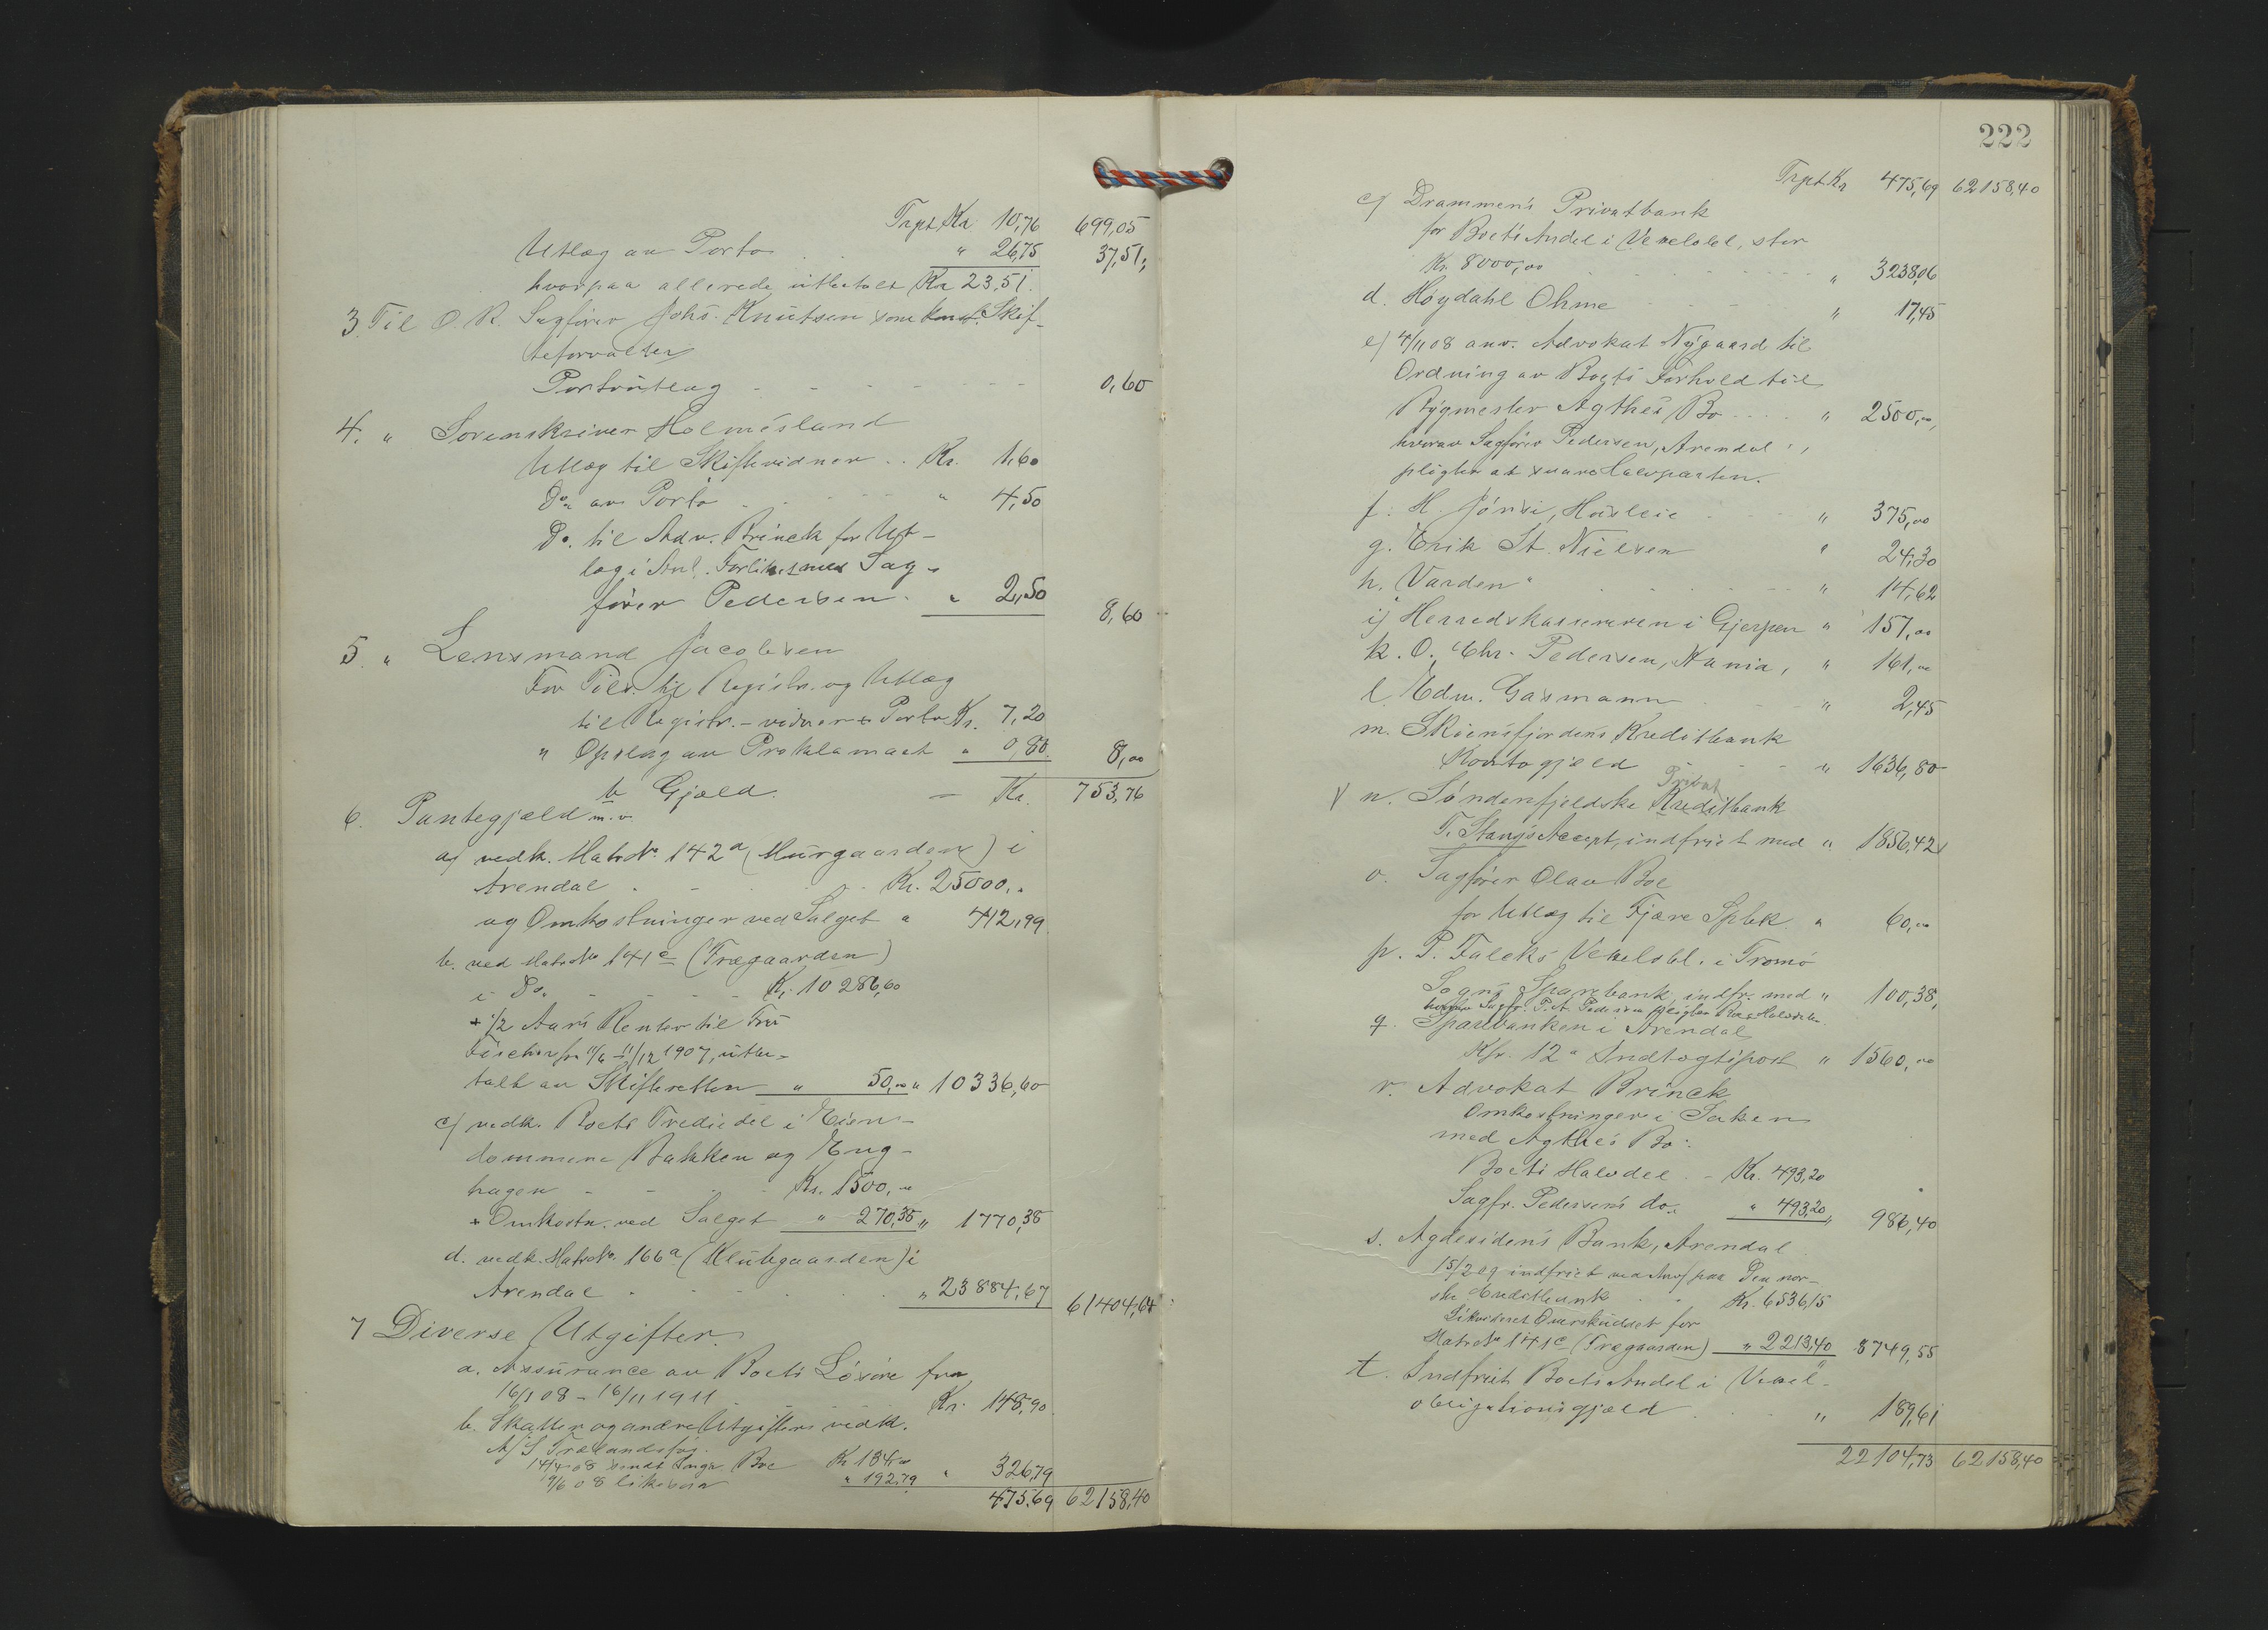 Trpt Kr 10,76 699,05
Utlæg av Porto " 26,75 37,51
hvorpaa allerede utbetalt Kr 23,51.
3. Til O. R. Sagfører Johs. Knutsen som konst. Skif-
teforvalter
Portoutlæg - - - - - 0,60
4. " Sorenskriver Holmesland
Utlæg til Skiftevidner .. Kr. 1,60
Do. av Porto - - - " 4,50
Do. til Adv. Brinck for Ut-
læg i Anl. Forliket med Sag-
fører Pedersen. " 2,50 8,60
5. " Lensmand Jacobsen
For Tilst. til Registr. og Utlæg
til Registr.-vidner & Porto Kr. 7,20
" Opslag av Proklamaet " 0,80 8,00
b Gjæld. - Kr. 753,76
6. Pantegjæld m.v.
a) vedk. Matr No. 142a (Murgaarden) i
Arendal . - - - Kr. 25000,"
og Omkostninger ved Salget " 412,99
b. ved Matr No 141c (Trægaarden)
i Do. - - - - Kr. 10 286,60
+ 1/2 Aars Renter til Fru
Fischer fra 11/6 - 11/12 1907, utbe-
talt av Skifteretten " 50,00 " 10336,60
c) vedk. Boets Trediedel i Eien-
dommene Bakken og Eng-
hagen - - - - Kr. 1500,"
+ Omkostn. ved Salget " 270,38 " 1770,38
d. vedk. Matr No. 166a (Klubgaarden) i
Arendal . - - - " 23884,67 61404,64
7 Diverse Utgifter.
a. Assurance av Boets Løsøre fra
16/1 08 - 16/11 1911 Kr. 148,90
b. Skatter og andre Utgifter vedk.
A/S Trælandsfos.
14/4 08 sendt Boe Kr 134,00
9/6 08 likesaa " 192,79 " 326,79
475,69 62158,40
222
Trpt Kr 475,69 62158,40
c) Drammens Privatbank
for Boets Andel i Vexelobl, stor
Kr. 8000,00 - - - - " 3238,06
d. Høydahl Ohme - - - " 17,45
e) 4/11 08 anv. Advokat Nygaard til
Ordning av Boets Forhold til
Bygmester Agthes Bo - - - " 2500,00
hvorav Sagfører Pedersen, Arendal,
pligter at svare Halvparten.
f. H. Jønsi, Husleie - - " 375,00
g. Erik St. Nielsen " 24,30
h. "Varden" - - - - " 14,62
i) Herredskassereren i Gjerpen " 157,00
k. O. Chr. Pedersen, Kania, " 161,00
l. Edw. Gasmann - - " 2,45
m. Skiensfjordens Kreditbank
Kontogjæld - - " 1636,80
Privat
V n. Søndenfjeldske Kreditbank
T. Stangs Accept, indfriet med " 1856,42
o. Sagfører Olav Boe
for Utlæg til Fjære Spbk. " 60,00
p. P. Falcks Vexelobl. i Tromø
Sogns Sparebank, indfr. med " 100,38,
hvorav Sagfr. P. A. Pedersen pligter Halvdelen.
q. Sparebanken i Arendal
Kfr. 12a Indtægtspost " 1560,00
r. Advokat Brinck
Omkostninger i Saken
med Agthes Bo:
Boets Halvdel . - Kr. 493,20
Sagfr. Pedersens do. " 493,20 " 986,40
s. Agdesidens Bank, Arendal
15/2 09 indfriet ved Anv. paa Den nor-
ske Creditbank . . Kr. 6536,15
Likvideret Overskuddet for
Matr No 141c (Trægaarden) " 2213,40 8749,55
t. Indfriet Boets Andel i Vexel-
obligationsgjæld . . . " 189,61
22104,73 62158,40